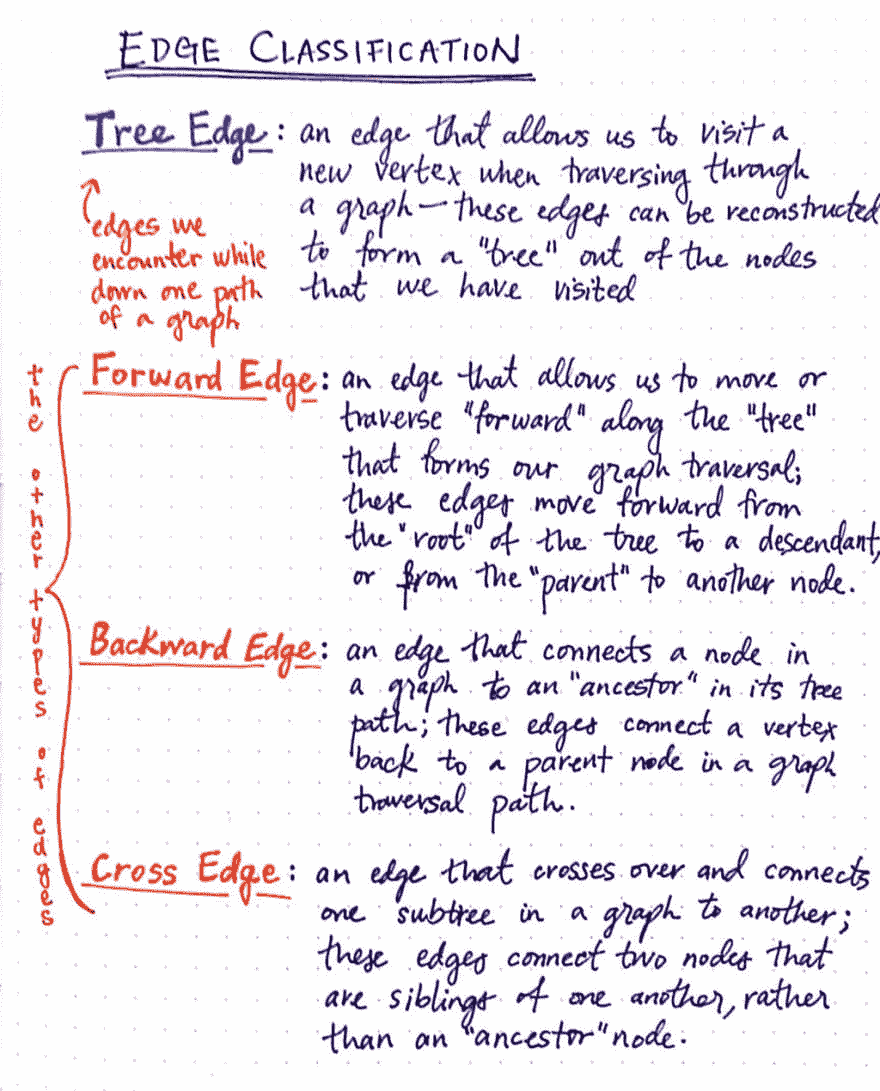 EDGE CLASSIFICATION
Tree Edge: an edge that allows us to visit a
new vertex when traversing through
a graph — these edges can be reconstructed
to form a "tree" out of the nodes
that we have visited
edges we
encounter while
down one path
of a graph
the other types of edges
Forward Edge: an edge that allows us to move or
traverse "forward" along the "tree"
that forms our graph traversal;
these edges move forward from
the "root" of the tree to a descendant,
or from the "parent" to another node.
Backward Edge: an edge that connects a node in
a graph to an "ancestor" in its tree
path; these edges connect a vertex
back to a parent node in a graph
traversal path.
Cross Edge: an edge that crosses over and connects
one subtree in a graph to another;
these edges connect two nodes that
are siblings of one another, rather
than an "ancestor" node.